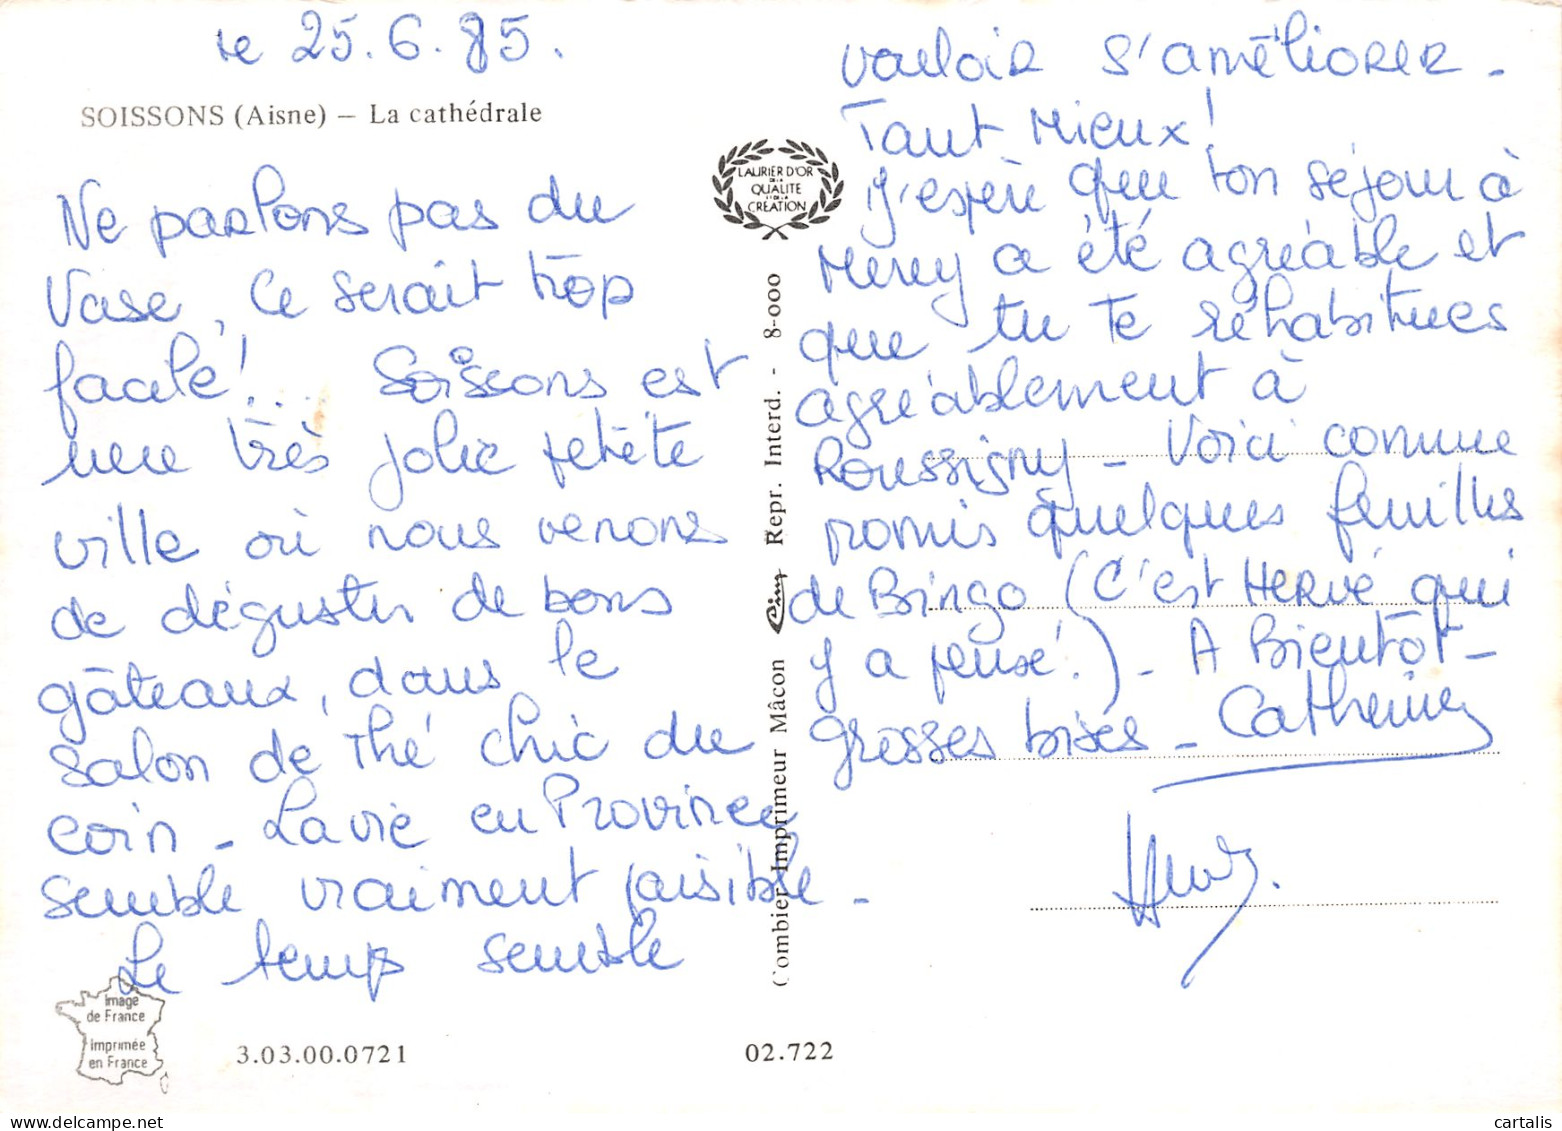 le 25.6.85.
SOISSONS (Aisne) – La cathédrale
Ne parlons pas du
Vase, ce serait trop
facile!... Soissons est
une très jolie petite
ville où nous venons
de déguster de bons
gâteaux, dans le
salon de thé chic du
coin - La vie en Province
semble vraiment paisible -
Le temps semble
vouloir s'améliorer -
Tant mieux!
J'espère que ton séjour à
a été agréable et
que tu te réhabitues
agréablement à
Roussigny - Voici comme
promis quelques feuilles
de Bingo (C'est HERVÉ qui
y a pensé!) - A Bientôt -
grosses bises - Catherine
Hervé.
LAURIER D'OR
DE LA
QUALITE
ET DE LA
CREATION
Combier Imprimeur Mâcon Cim Repr. Interd. - 8-000
Image
de France
Imprimée
en France
3.03.00.0721
02.722
cartalis